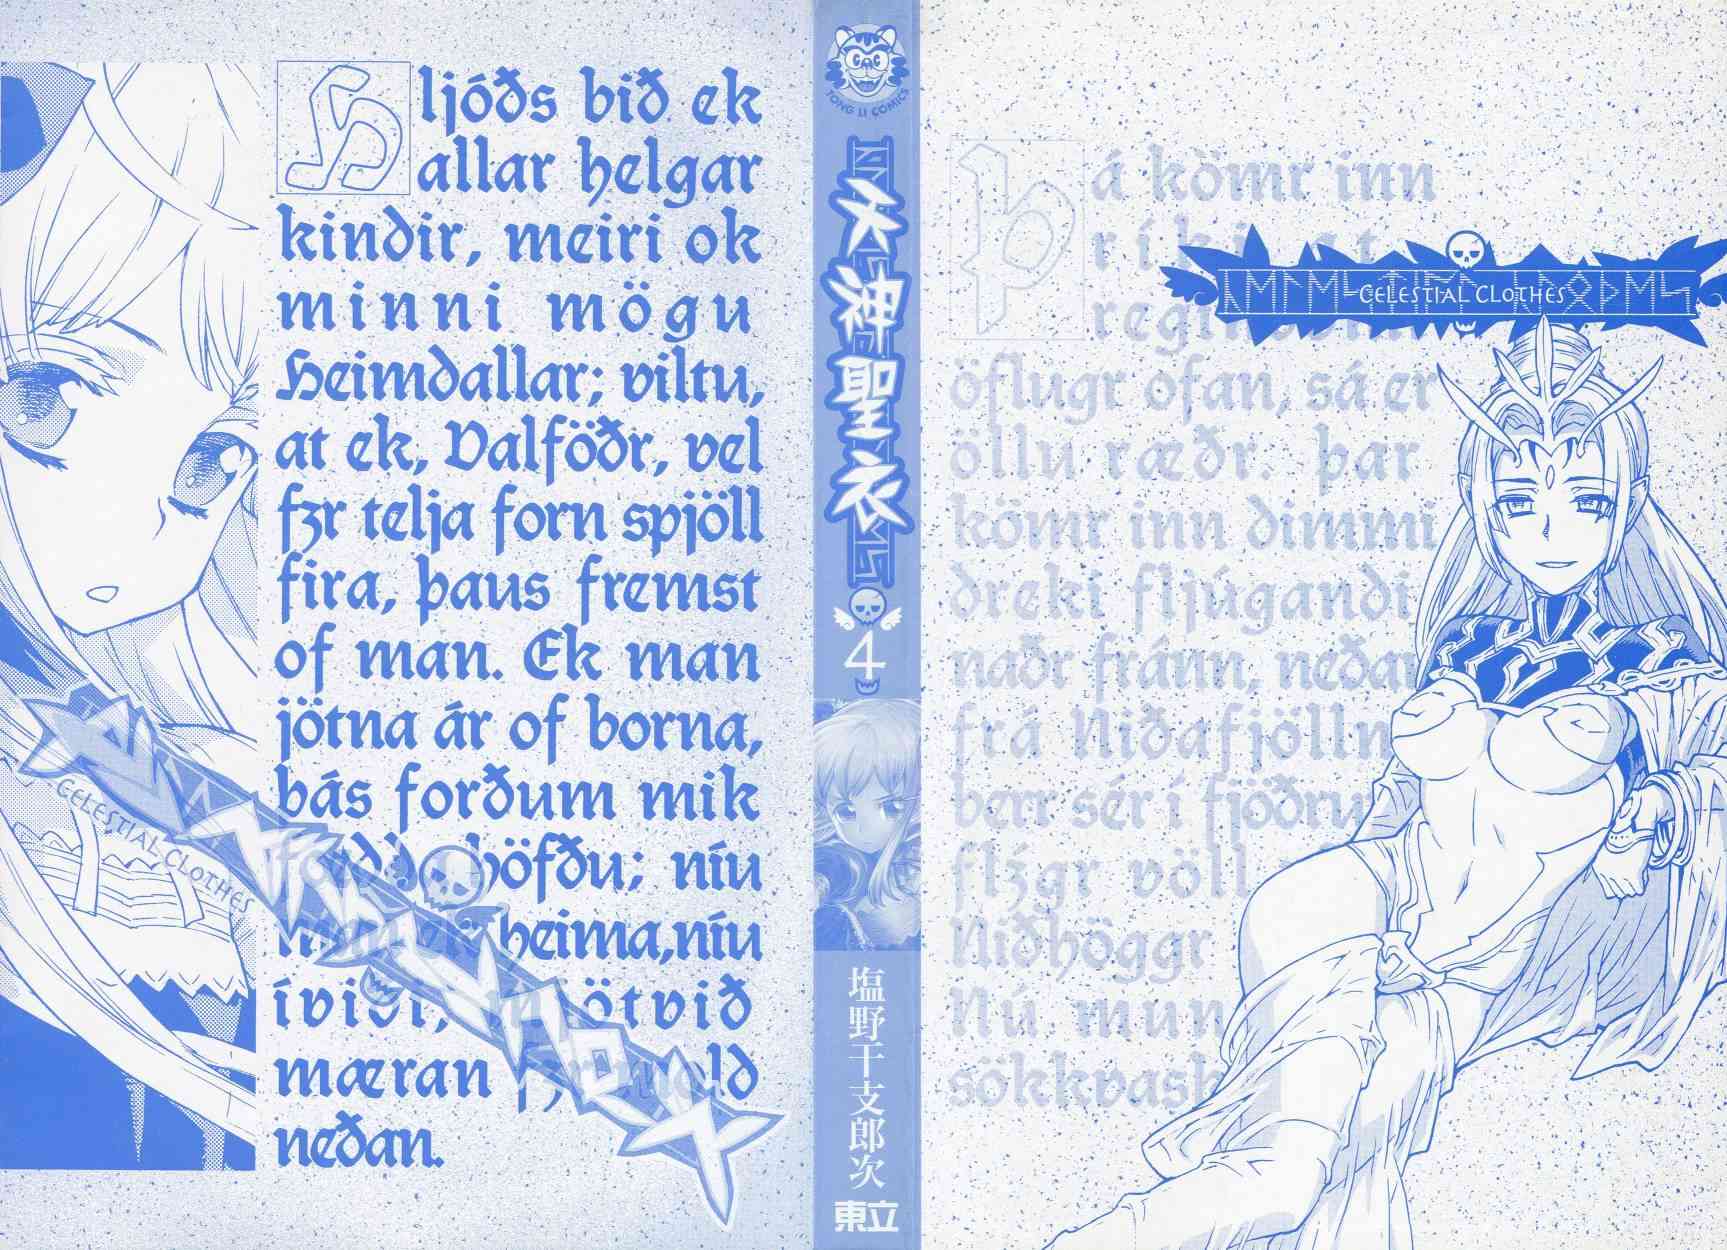 Hljóðs bið ek
allar helgar
kindir, meiri ok
minni mögu
Heimdallar; viltu,
at ek, Valföðr, vel
fȝr telja forn spjöll
fira, þaus fremst
of man. Ek man
jötna ár of borna,
þás forðum mik
höfðu; níu
heima, níu
mjötvið
mæran
neðan.
CELESTIAL CLOTHES
TONG LI COMICS
天神聖衣
4
塩野干支郎次
東立
Þá kömr inn
öflugr ofan, sá er
öllu ræðr. Þar
kömr inn dimmi
dreki fljúgandi
naðr fránn, neðan
frá Niðafjöllu
berr sér í fjöðru
flȝgr völl
Niðhöggr
Nú mun
sökkvask
CELESTIAL CLOTHES